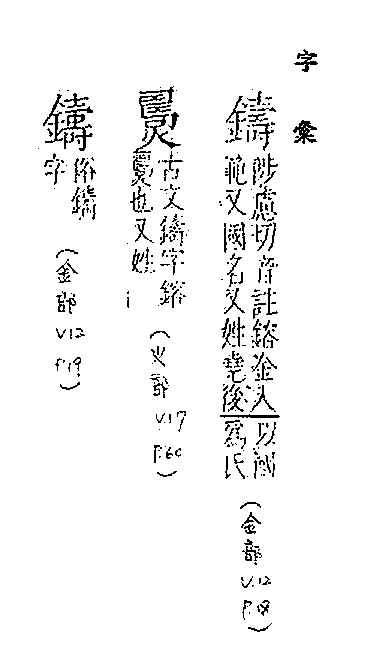 字彙
鑄
陟慮切音註鎔金入
範又國名又姓堯後
以國
為氏
(金部 V.12 P.18)
古文鑄字鎔
也又姓
(火部 V.17 P.60)
鑄
俗鑄
字
(金部 V.12 P.19)